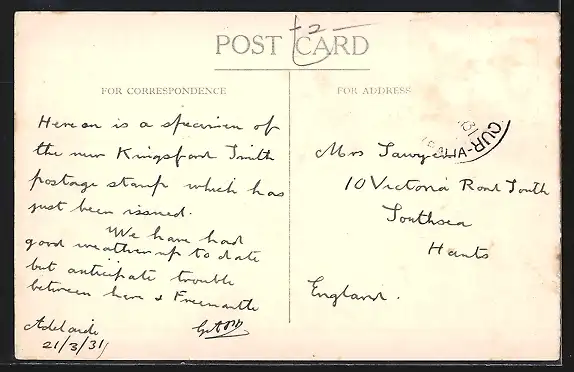 +2-
POST CARD
FOR CORRESPONDENCE
FOR ADDRESS
Hereon is a specimen of
the new Kingsford Smith
postage stamp which has
just been issued.
We have had
good weather up to date
but anticipate trouble
between here & Freemantle
Adelaide
21/3/31
Mrs Sawyer
10 Victoria Road South
Southsea
Hants
England.